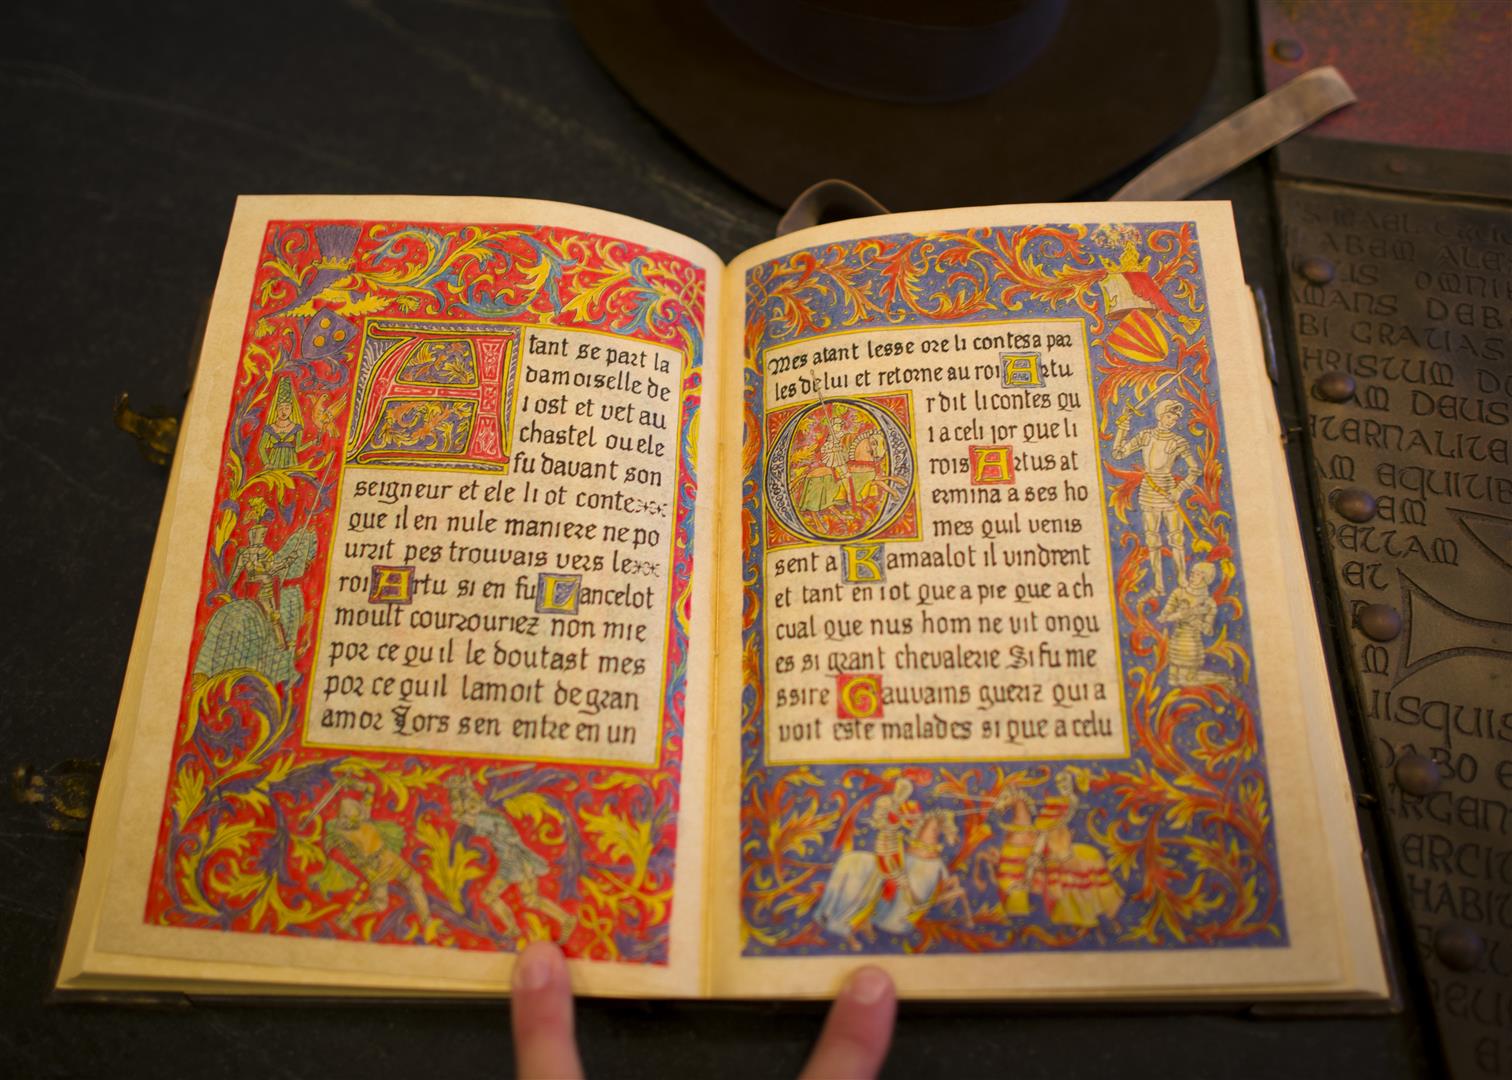 Atant se part la
damoiselle de
i ost et vet au
chastel ou ele
fu davant son
seigneur et ele li ot conte
que il en nule maniere ne po
urrit pes trouvais vers le
roi Artu si en fu Lancelot
moult courrouriez non mie
por ce qu il le doutast mes
por ce quil lamoit de gran
amor Lors sen entre en un
Mes atant lesse ore li contes a par
les de lui et retorne au roi Artu
Or dit li contes qu
i a celi jor que li
rois Artus at
ermina a ses ho
mes quil venis
sent a Kamaalot il vindrent
et tant en i ot que a pie que a ch
cual que nus hom ne vit onqu
es si grant chevalerie Si fu me
ssire Gauvains gueriz qui a
voit este malades si que a celu
ABEM ALE
OMNI
AMANS DEB
BI GRATIAS
HRISTUM D
AM DEUS
ETERNALITE
AM EQUITIB
EM
ETTAM
ET
M
UISQUIS
DABO E
ARGEN
ERCI
HABI